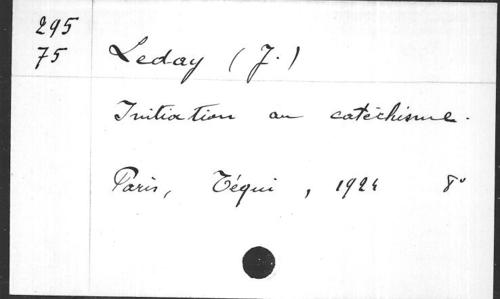 295
75
Leday (J.)
Initiation au catéchisme.
Paris, Téqui, 1924 8°